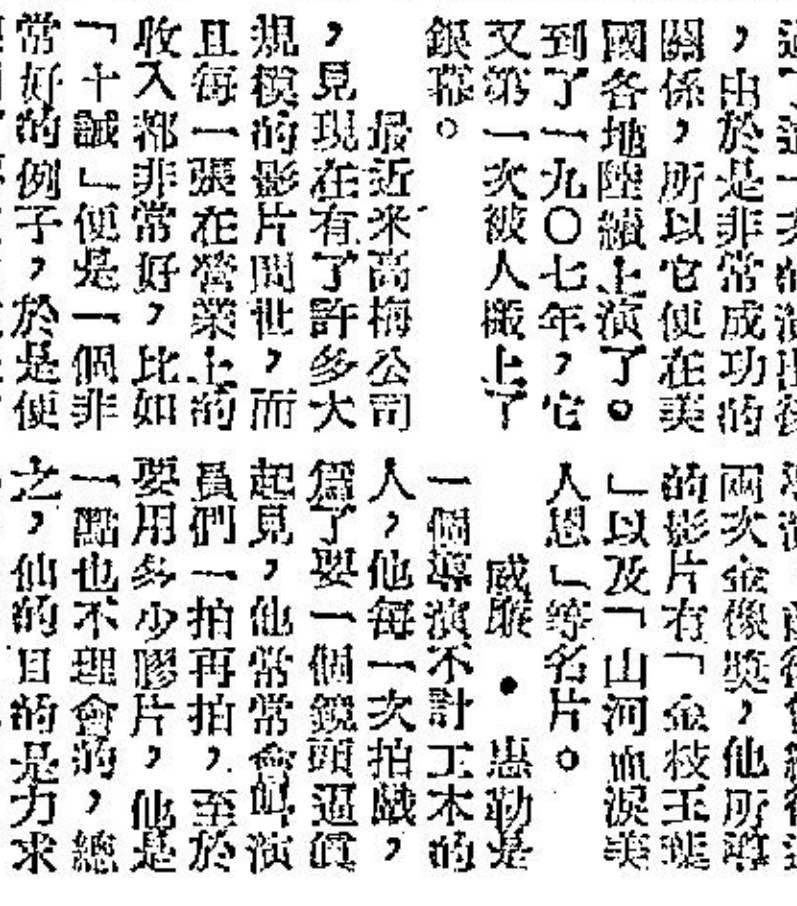 ，由於是非常成功的
關係，所以它便在美
國各地陸續上演了。
到了一九〇七年，它
又第一次被人搬上了
銀幕。
最近米高梅公司
，見現在有了許多大
規模的影片問世，而
且每一張在營業上的
收入都非常好，比如
「十誡」便是一個非
常好的例子，於是便
兩次金像獎，他所導
的影片有「金枝玉葉
」以及「山河血淚美
人恩」等名片。
威廉•惠勒是
一個導演不計工本的
人，他每一次拍戲，
爲了要一個鏡頭逼真
起見，他常常會飭演
員們一拍再拍，至於
要用多少膠片，他是
一點也不理會的，總
之，他的目的是力求